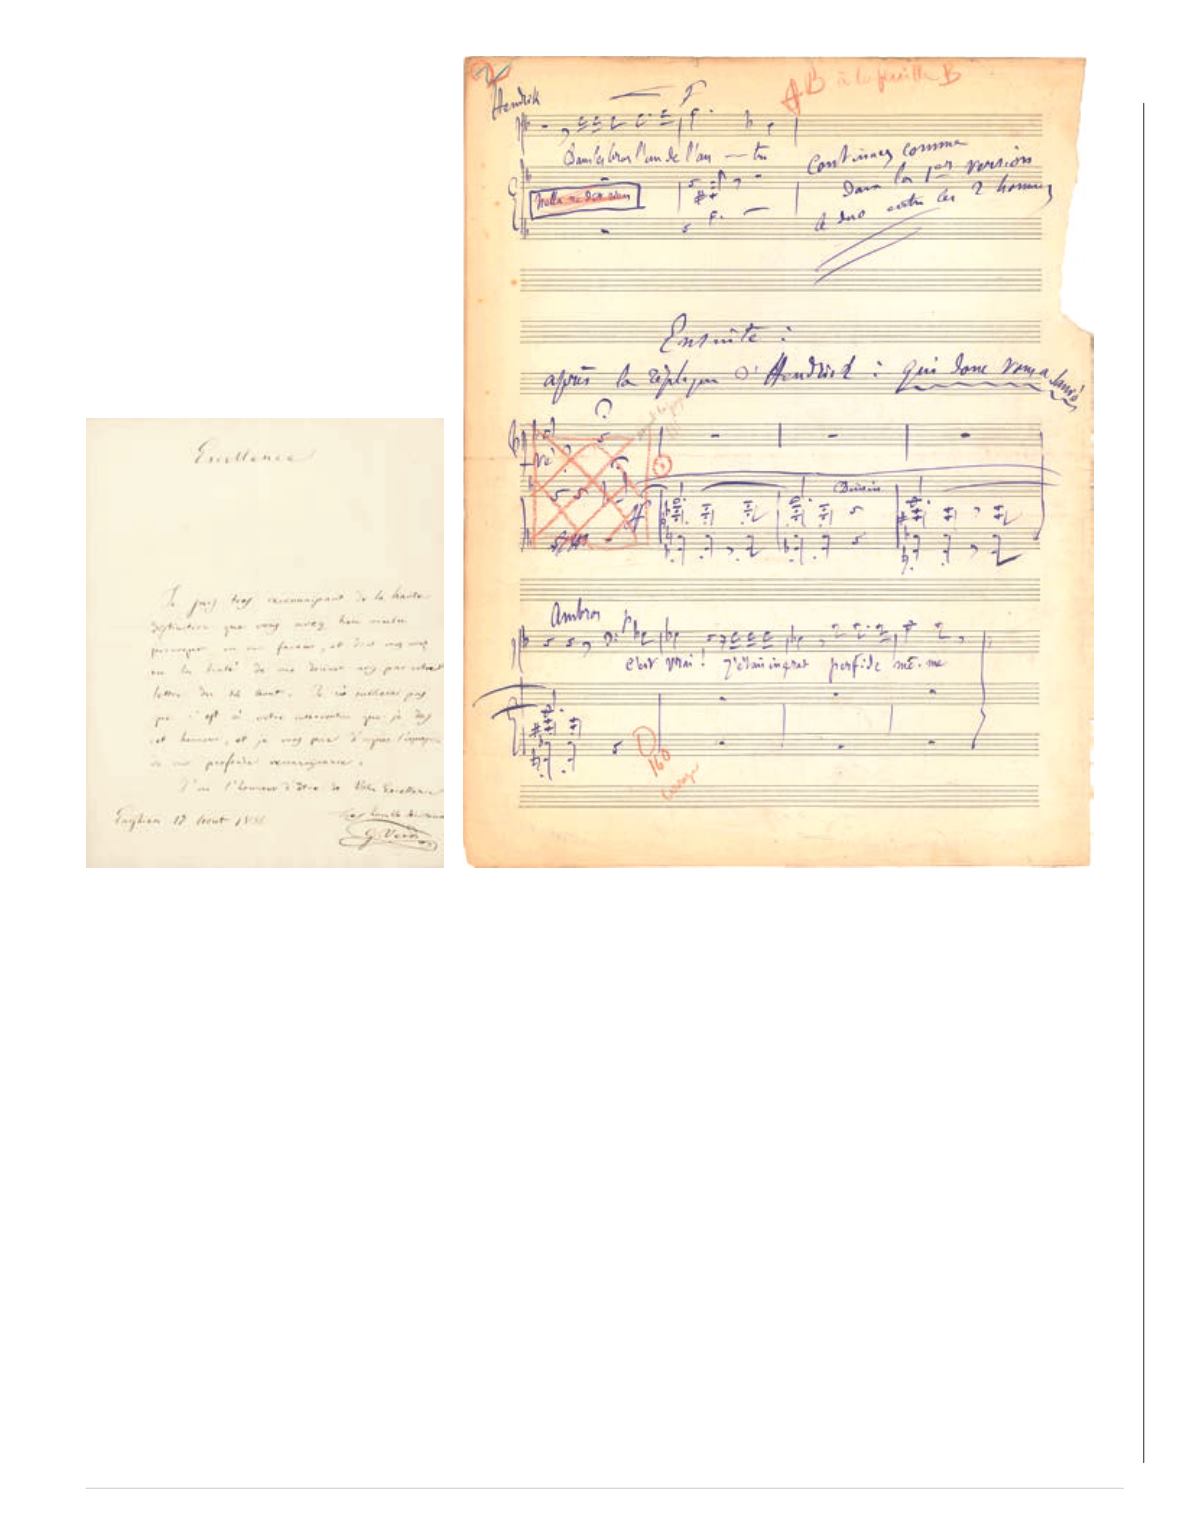 Excellence
Je suis très reconnaissant de la haute
distinction que vous avez bien voulu
provoquer en ma faveur, et dont vous avez
eu la bonté de me donner avis par votre
lettre du 14 Aout. Je n'oublierai pas
que c'est à votre intervention que je dois
cet honneur, et je vous prie d'agréer l'expression
de ma profonde reconnaissance.
J'ai l'honneur d'être de Votre Excellence
Enghien 17 Aout
G. Verdi
Hendrik
AB à la feuille B
Dans les bras l'un de l'au — tre
Continuez comme
dans la 1ère version
le duo entre les 2 hommes
Ensuite :
après la réplique d'Hendrick : qui donc vous a
vé
Ambros
c'est vrai ! j'étais ingrat perfide mê-me
D
160